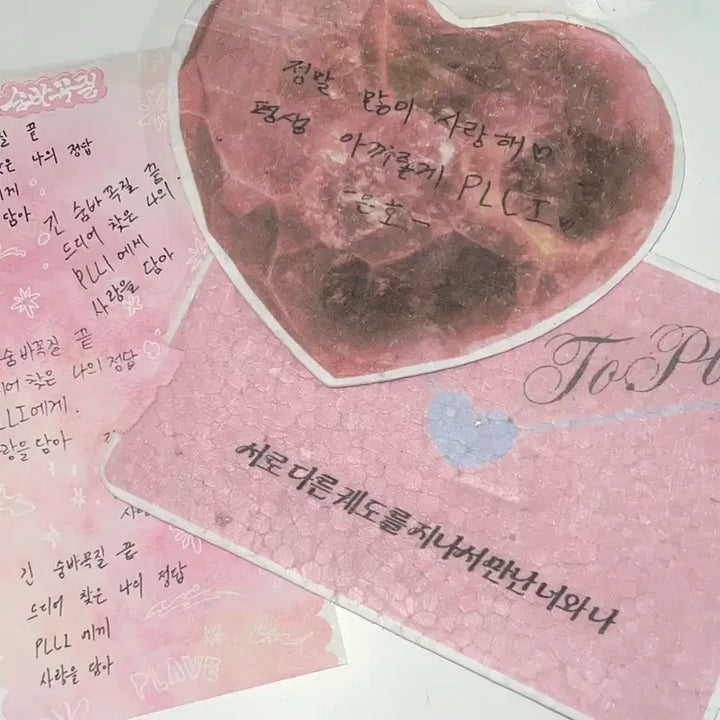 숨바꼭질
끝
나의 정답
에게
담아
긴 숨바꼭질 끝
드디어 찾은 나의
PLLI 에게
사랑을 담아
숨바꼭질 끝
찾은 나의 정답
에게.
담아
긴 숨바꼭질 끝
드디어 찾은 나의 정답
PLLI 에게
사랑을 담아
PLAVE
정말 많이 사랑해♡
평생 아껴줄게 PLLI
-은호-
To Pl
서로 다른 궤도를 지나서 만난 너와 나